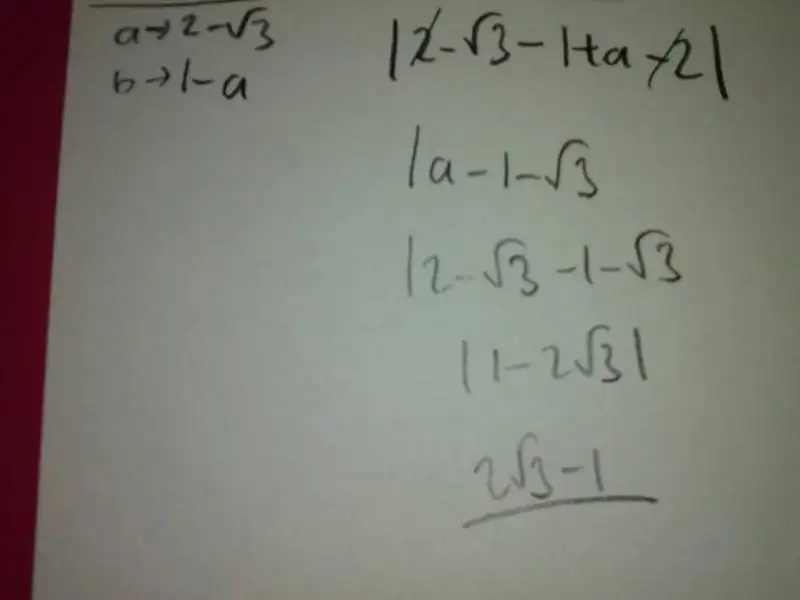 a→2-√3
b→1-a
|2-√3-1+a-2|
|a-1-√3
|2-√3-1-√3
|1-2√3|
2√3-1